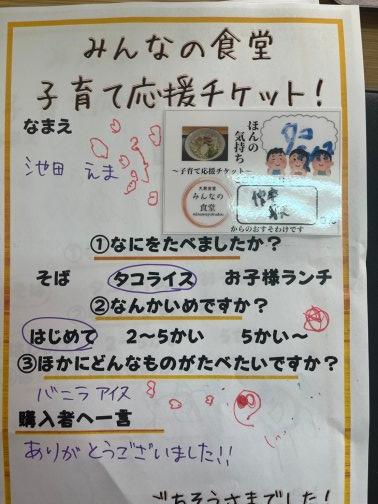 みんなの食堂
子育て応援チケット!
なまえ
池田 えま
ほんの
気持ち
～子育て応援チケット～
みんなの
食堂
からのおすそわけです
①なにをたべましたか？
そば タコライス お子様ランチ
②なんかいめですか？
はじめて 2～5かい 5かい～
③ほかにどんなものがたべたいですか？
バニラアイス
購入者へ一言
ありがとうございました!!
ごちそうさまでした!